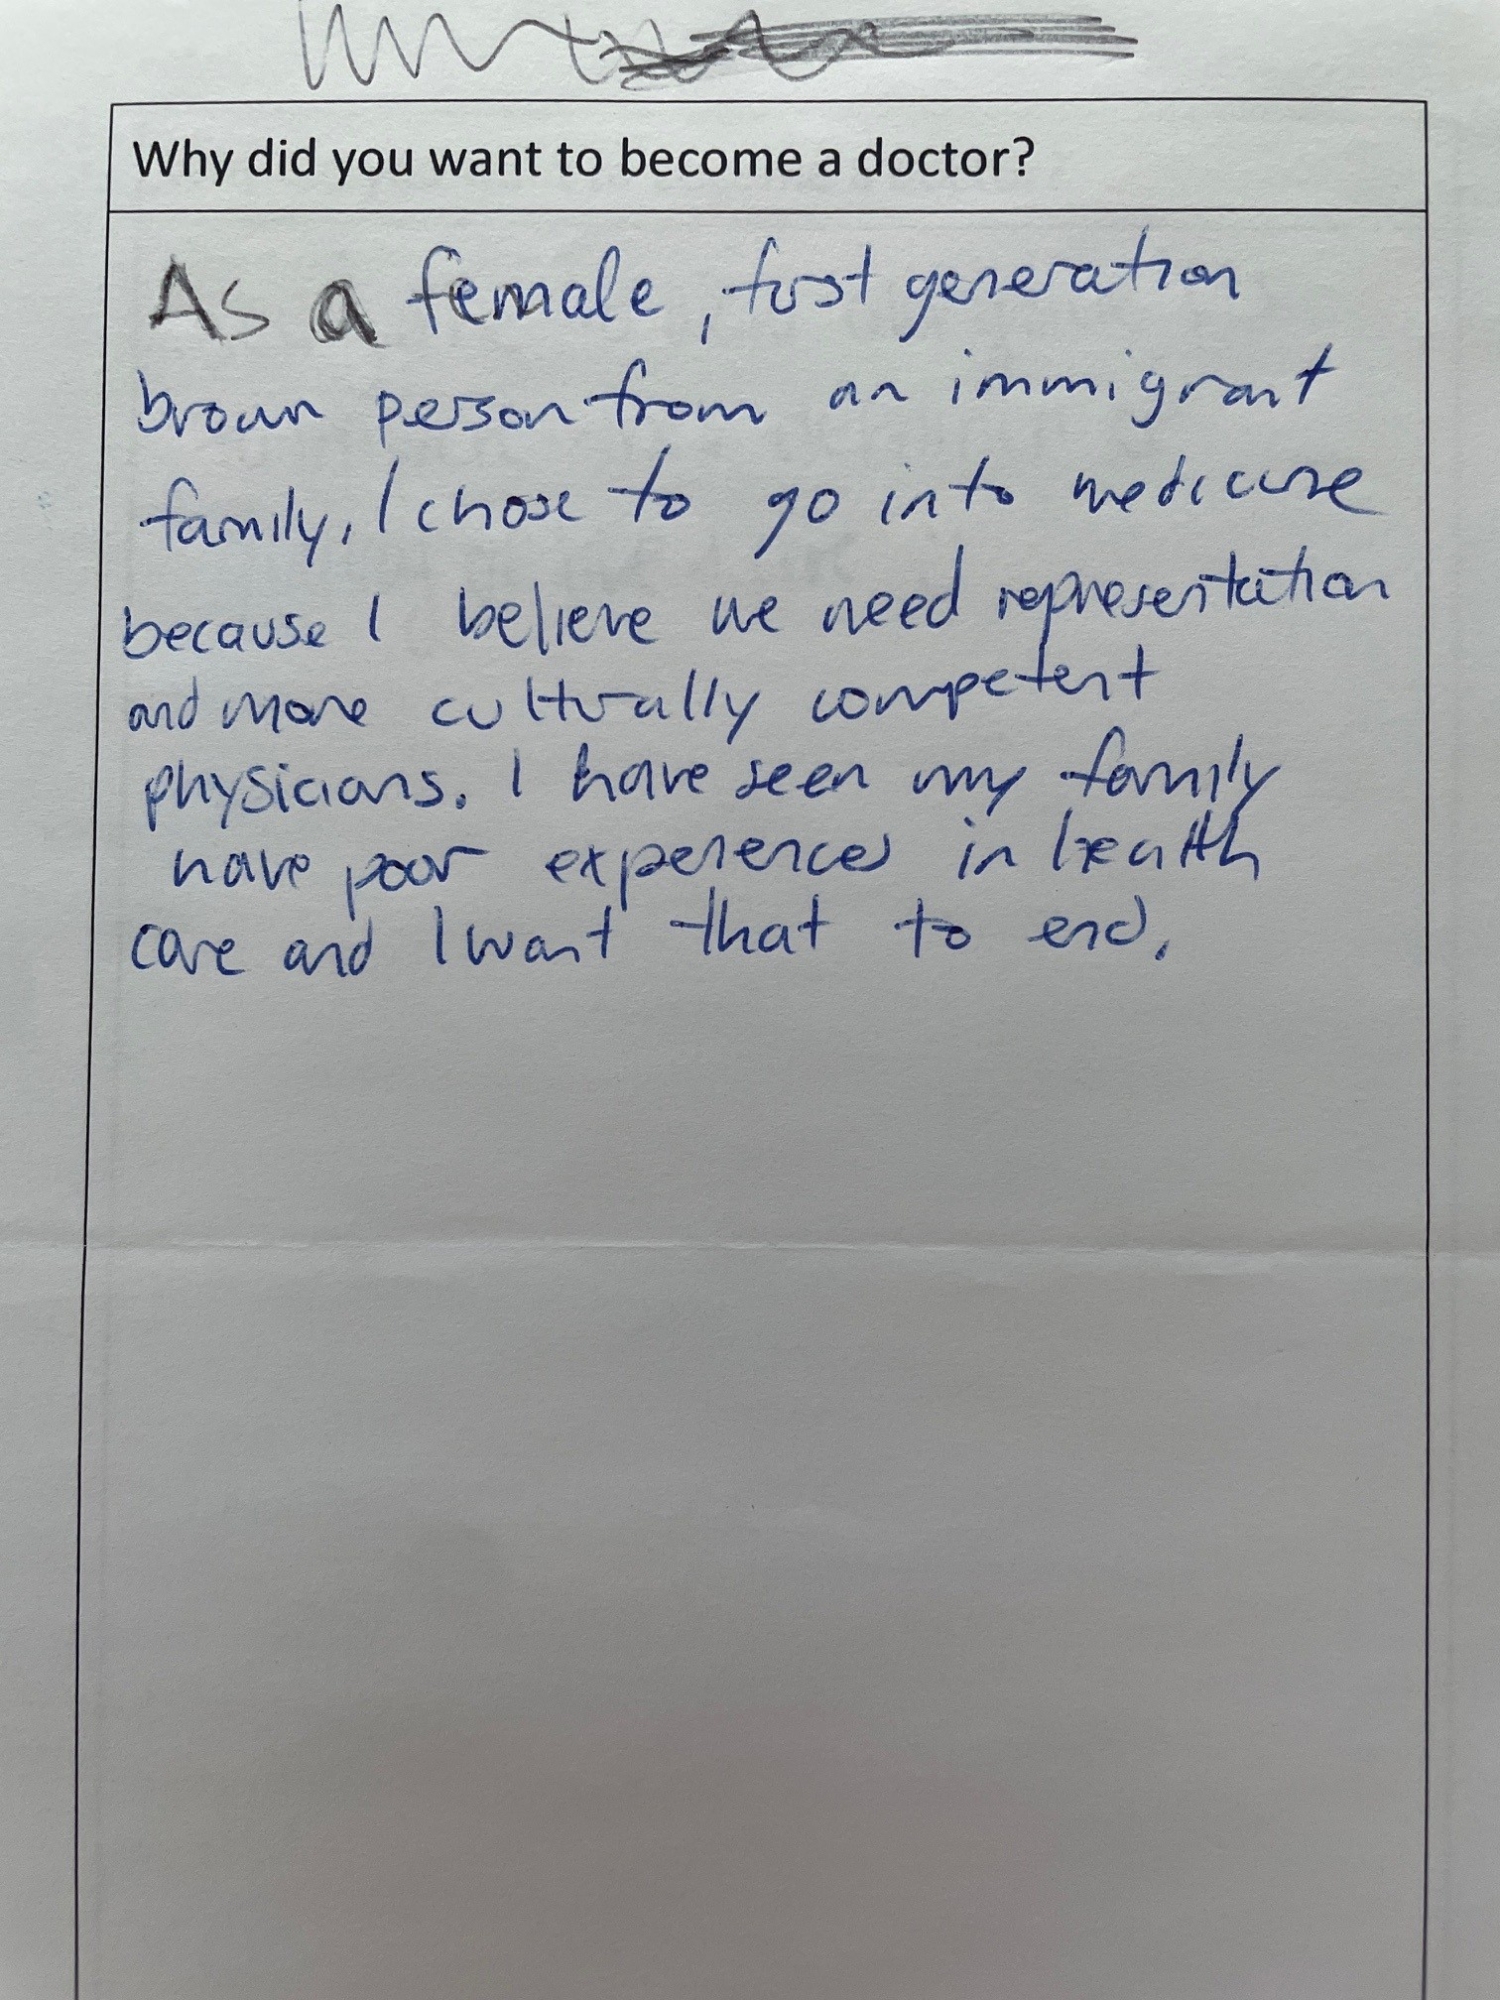 Why did you want to become a doctor?
As a female, first generation
brown person from an immigrant
family, I chose to go into medicine
because I believe we need representation
and more culturally competent
physicians. I have seen my family
have poor experiences in health
care and I want that to end.